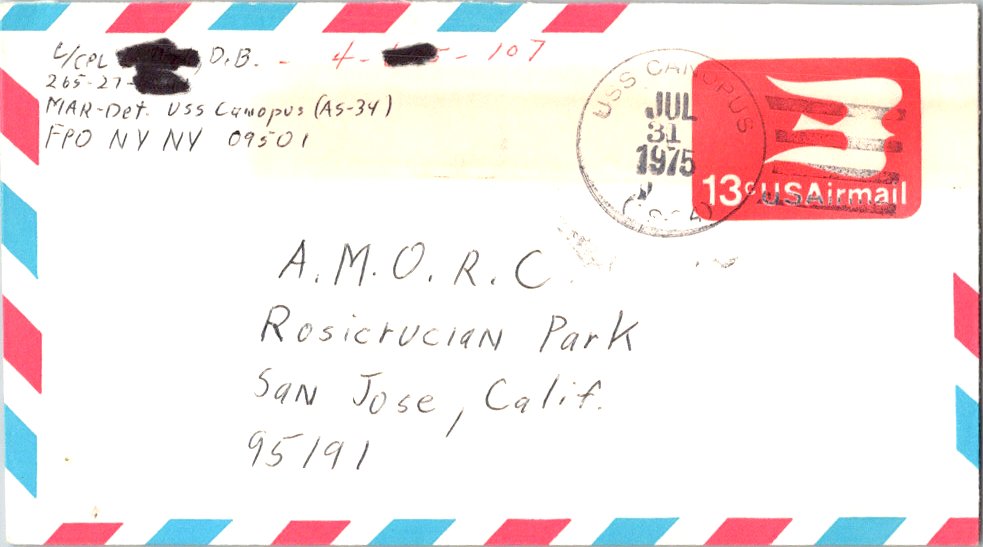 L/CPL , D.B. - 4- 5-107
265-27-
MAR-Det. USS Canopus (AS-34)
FPO NY NY 09501
USS CANOPUS
JUL
31
1975
13c USAirmail
A.M.O.R.C.
Rosicrucian Park
San Jose, Calif.
95191